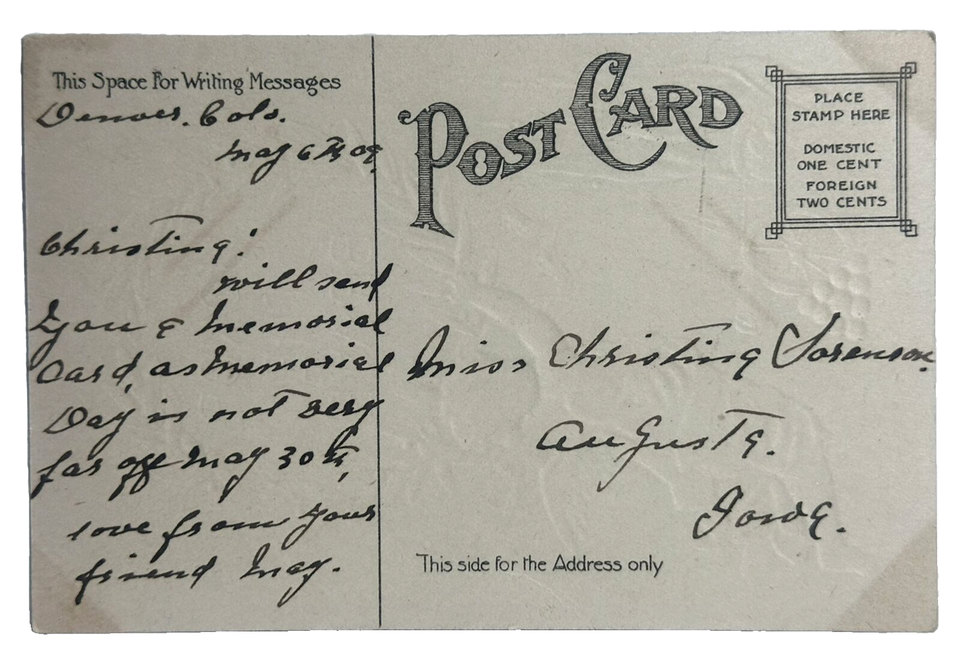 This Space For Writing Messages
Denver. Colo.
May 6th 09
Christina!
will send
you a memorial
Card, as memorial
Day is not very
far off May 30th,
love from your
friend May.
POST CARD
PLACE
STAMP HERE
DOMESTIC
ONE CENT
FOREIGN
TWO CENTS
Miss Christina Sorenson.
Augusta.
Iowa.
This side for the Address only